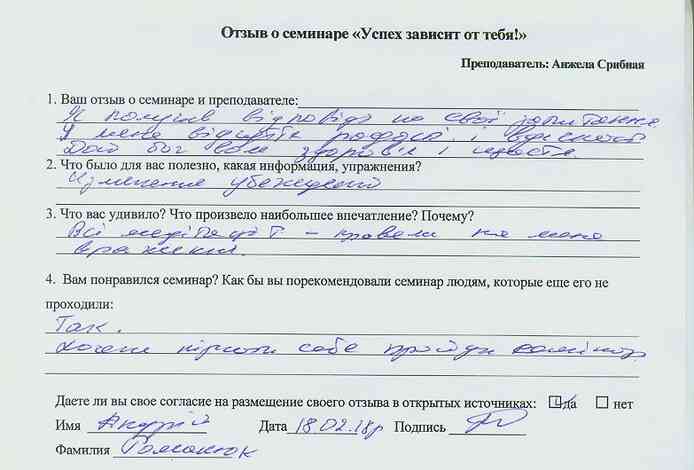 Отзыв о семинаре «Успех зависит от тебя!»
Преподаватель: Анжела Срибная
1. Ваш отзыв о семинаре и преподавателе:
Я получив відповіді на свої запитання.
У мене відчуття радості і
Дай бог вам здоров'я і щастя.
2. Что было для вас полезно, какая информация, упражнения?
Изменение убеждений
3. Что вас удивило? Что произвело наибольшее впечатление? Почему?
Всі медітації – на мене
враження.
4. Вам понравился семинар? Как бы вы порекомендовали семинар людям, которые еще его не
проходили:
Так.
Хочеш пізнати себе пройди семінар.
Даете ли вы свое согласие на размещение своего отзыва в открытых источниках: да нет
Имя Андрій Дата 18.02.18р Подпись
Фамилия Романюк